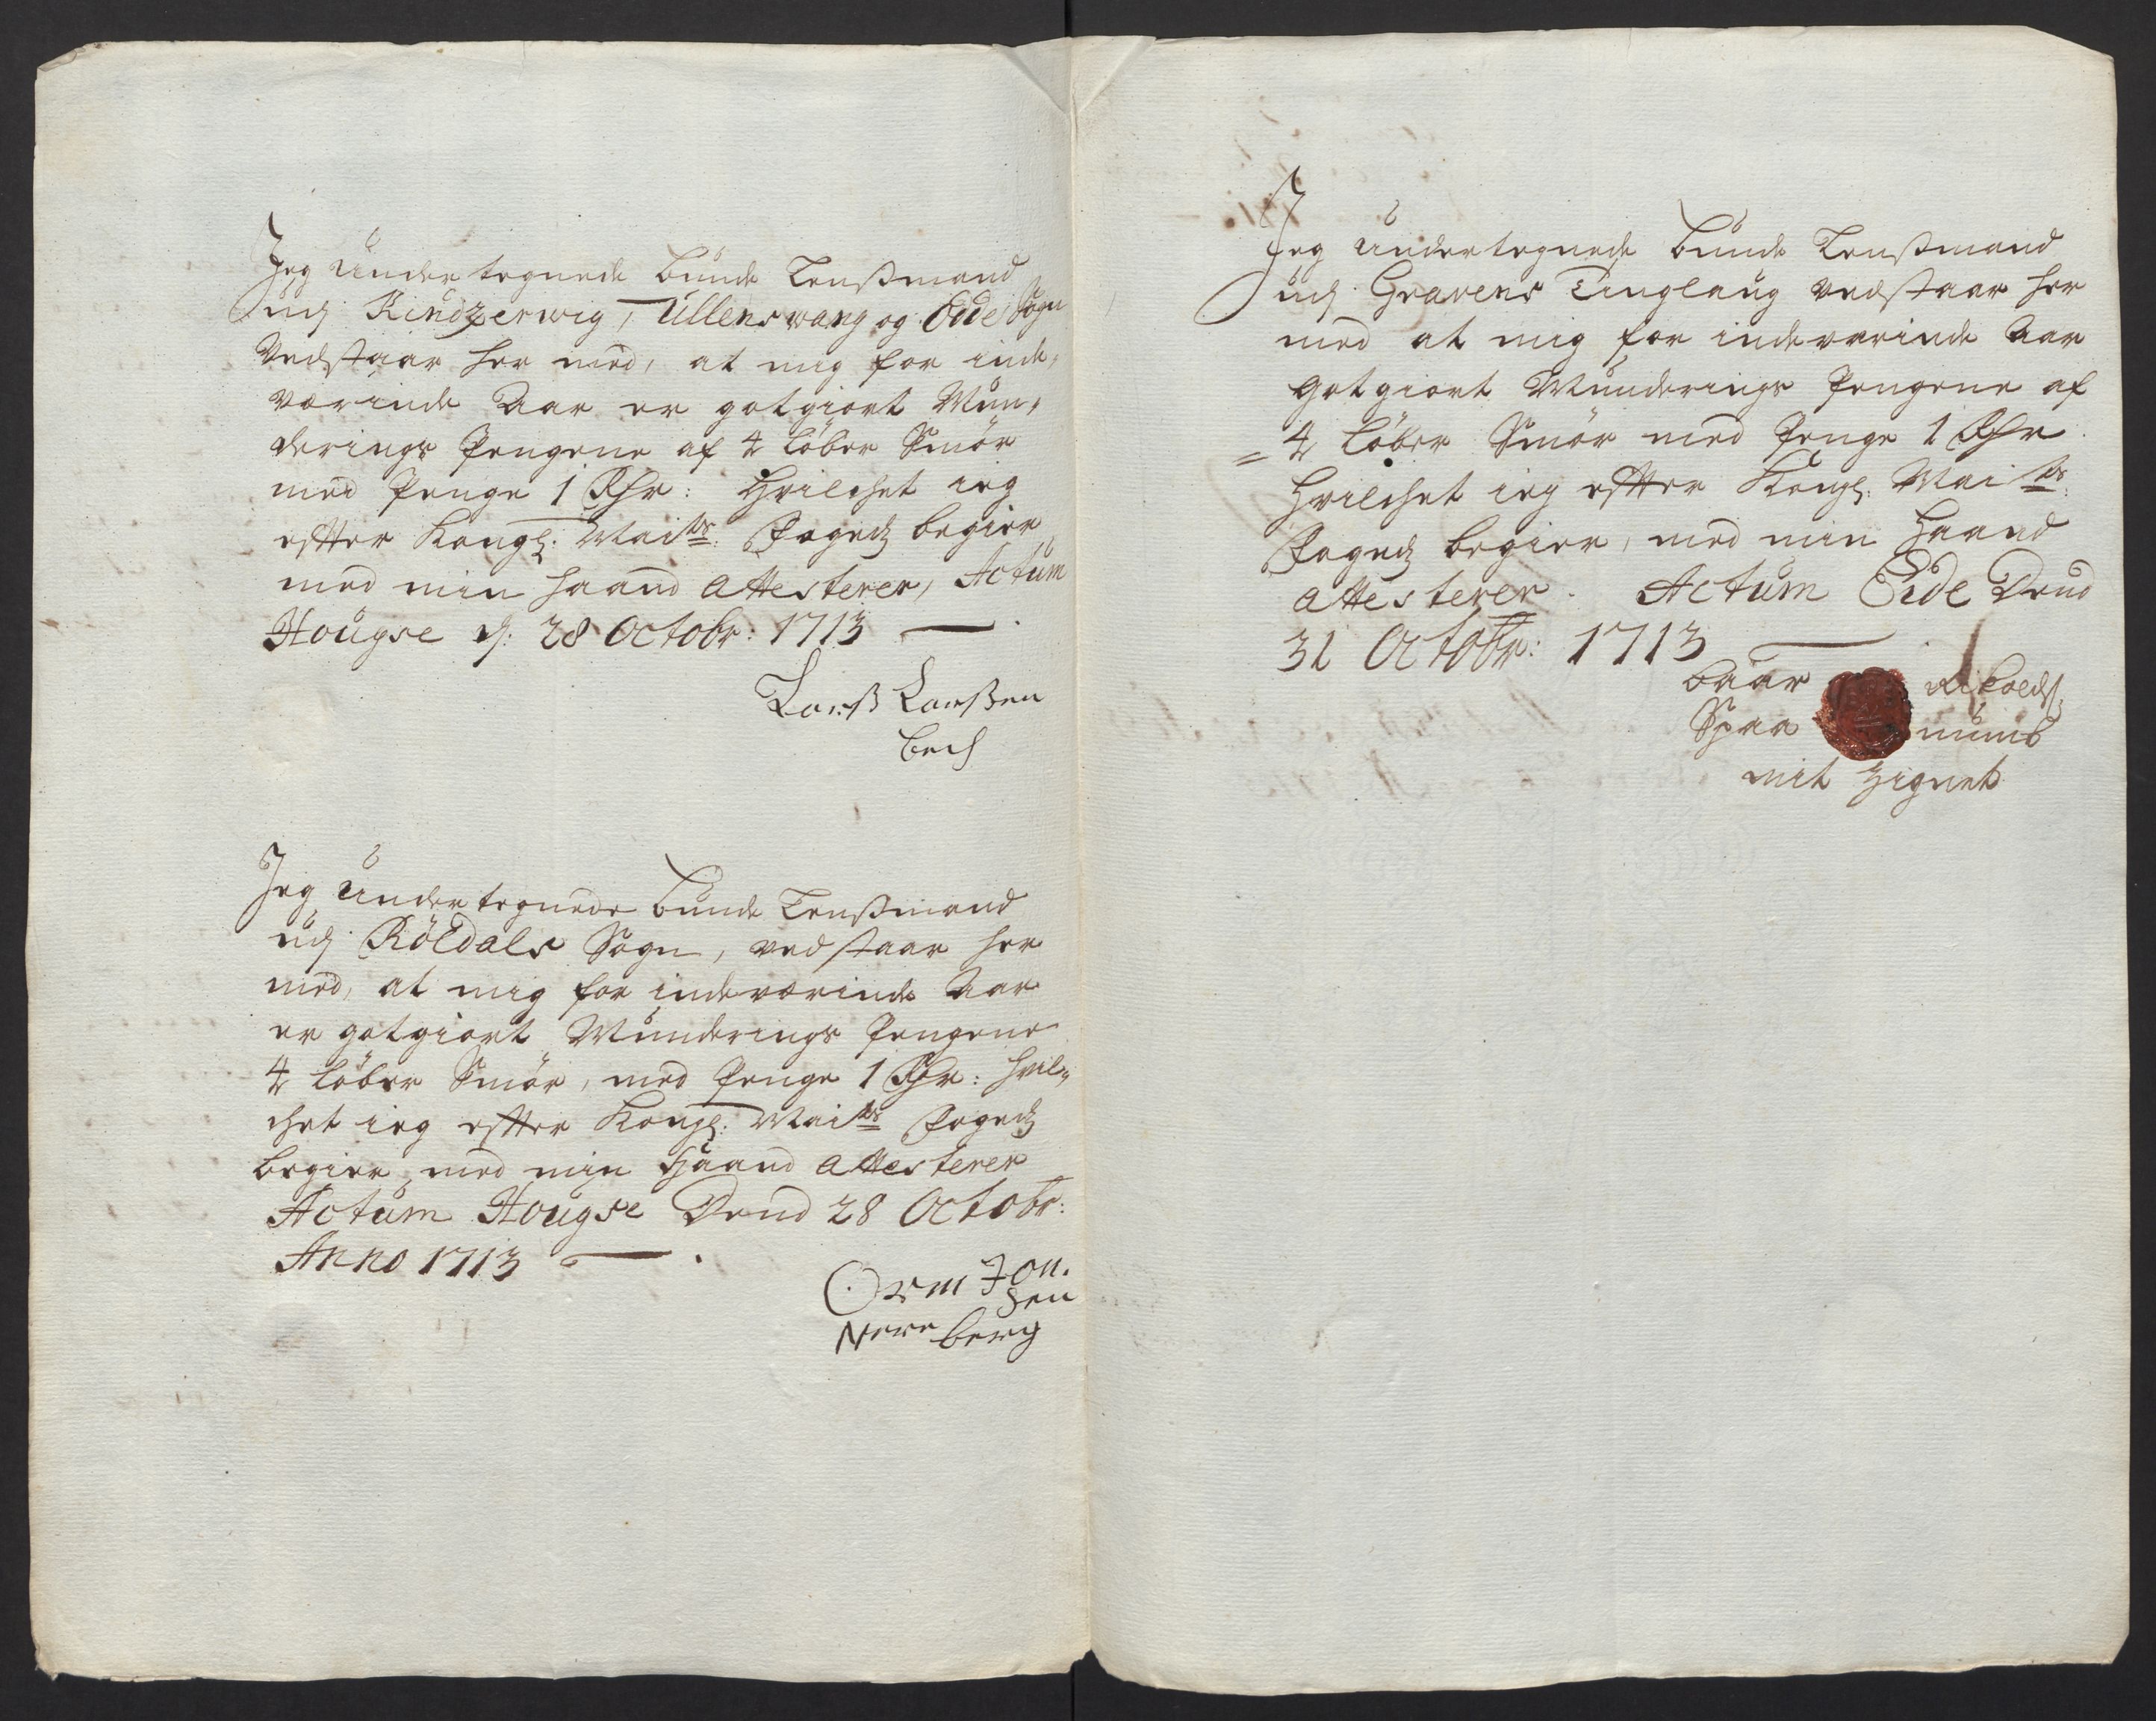 Jeg Undertegnede bunde Lensßmand
udj Kindzerwig, Ullenswang og Odde Sogn
Vedstaar her med, at mig for inde,
værinde Aar er gotgiort Mun,
derings Pengene af 4 Løber Smør
med Penge 1 Rdr: Hvilchet ieg
effter Kongl: Maits: Fogedz begier,
med min haand attesterer, Actum
Hougse d: 28 Octobr: 1713
Larß Larßen
bech
Jeg Undertegnede bunde Lensßmand
udj Röldals Sogn, vedstaar her
med, at mig for indeværinde Aar
er gotgiort Munderings Pengene
4 Løber Smør, med Penge 1 Rdr: hvil,,
chet ieg effter Kongl: Maits Fogedz
begier, med min Haand attesterer
Actum Hougse Dend 28 Octobr:
Anno 1713
Orm Jon.
sen
Nere berg
Jeg Undertegnede bunde Lensßmand
udj Gravens Tinglaug vedstaar her
med at mig for indeværinde Aar
gotgiort Munderings Pengene af
4 Løber Smør med Penge 1 Rdr
Hvilchet ieg effter Kongl: Maits:
Fogedz begier, med min Haand
attesterer. Actum Eide Dend
31 Octobr: 1713
baar
Spaa numb
mit Zignet